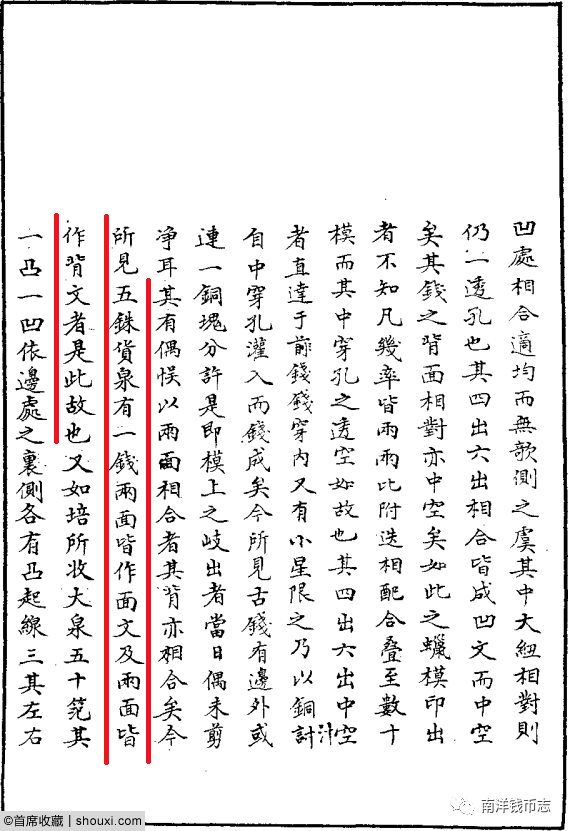 凹處相合適均而無欹側之虞其中大紐相對則
仍一透孔也其四出六出相合皆成凹文而中空
矣其錢之背面相對亦中空矣如此之蠟模印出
者不知凡幾率皆兩兩比附迭相配合疊至數十
模而其中穿孔之透空如故也其四出六出中空
者直達于前錢錢穿內又有小星限之乃以銅計
汁
自中穿孔灌入而錢成矣今所見古錢有邊外或
連一銅塊分許是即模上之岐出者當日偶未剪
净耳其有偶悮以兩面相合者其背亦相合矣今
所見五銖貨泉有一錢兩面皆作面文及兩面皆
作背文者是此故也又如培所收大泉五十笵其
一凸一凹依邊處之裏側各有凸起線三其左右
南洋钱币志
©首席收藏 | shouxi.com